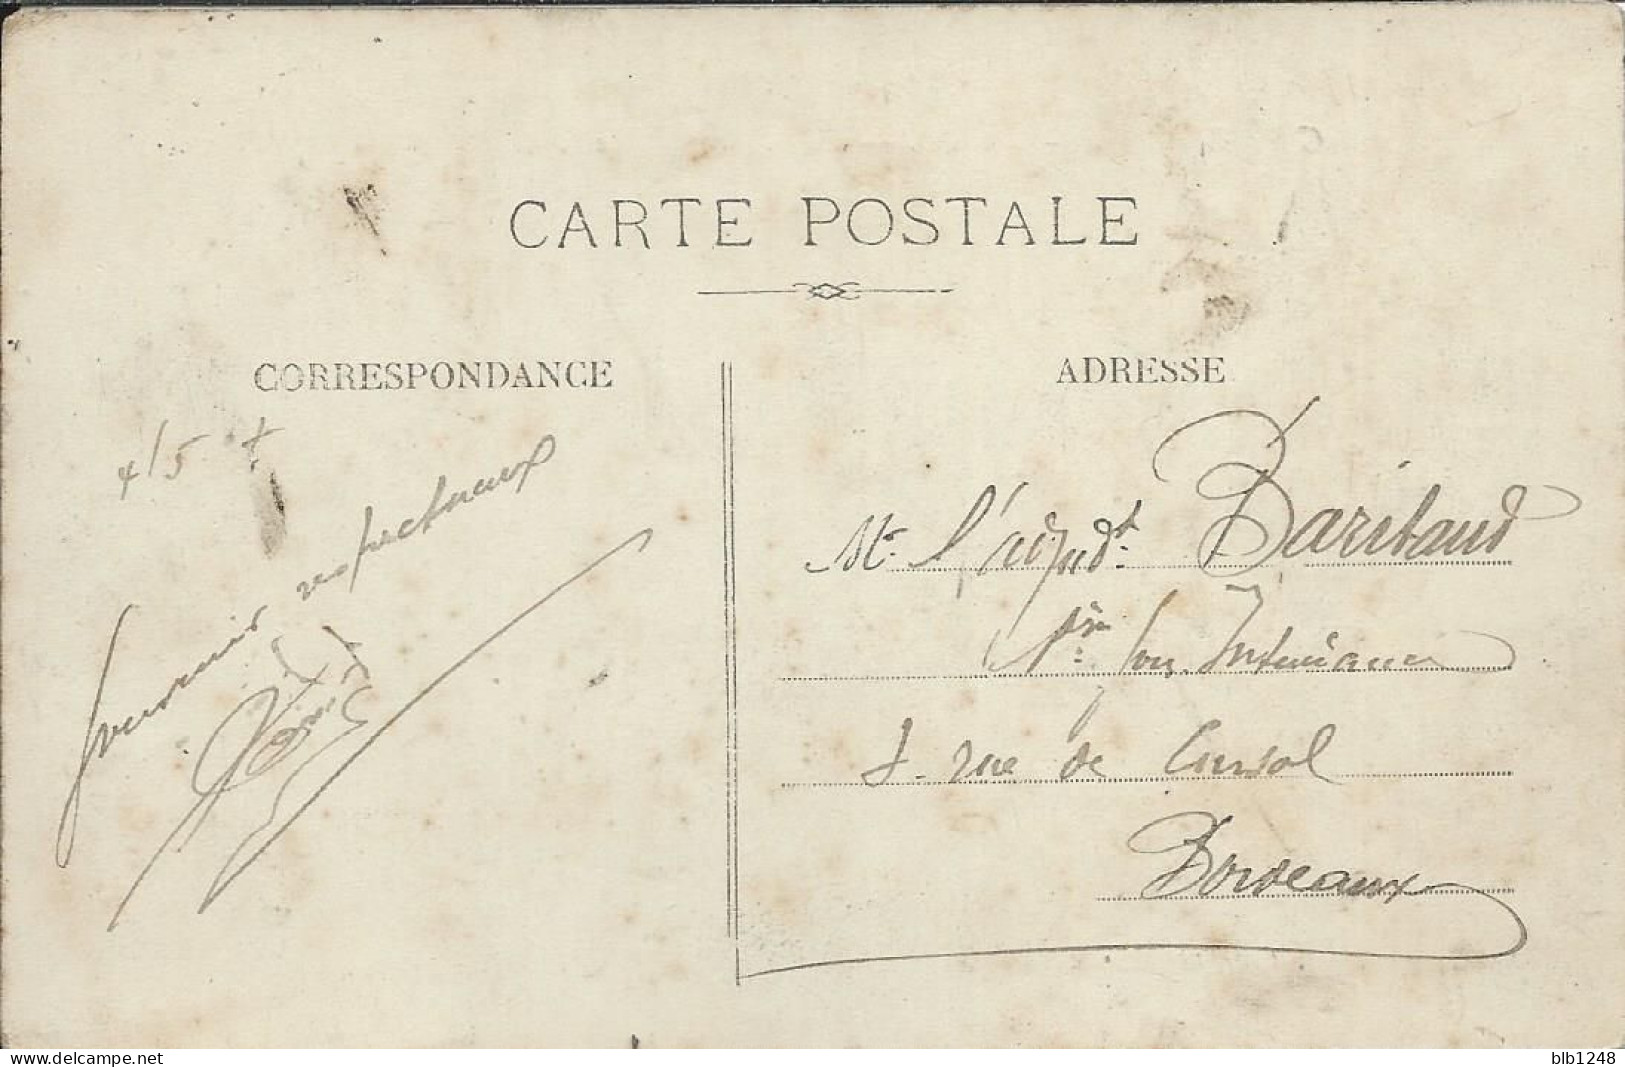 CARTE POSTALE
CORRESPONDANCE
ADRESSE
4/5
Souvenir respectueux
Mr. l'adjudt. Baritaud
Intendance
rue de Cursol
Bordeaux
www.delcampe.net
blb1248